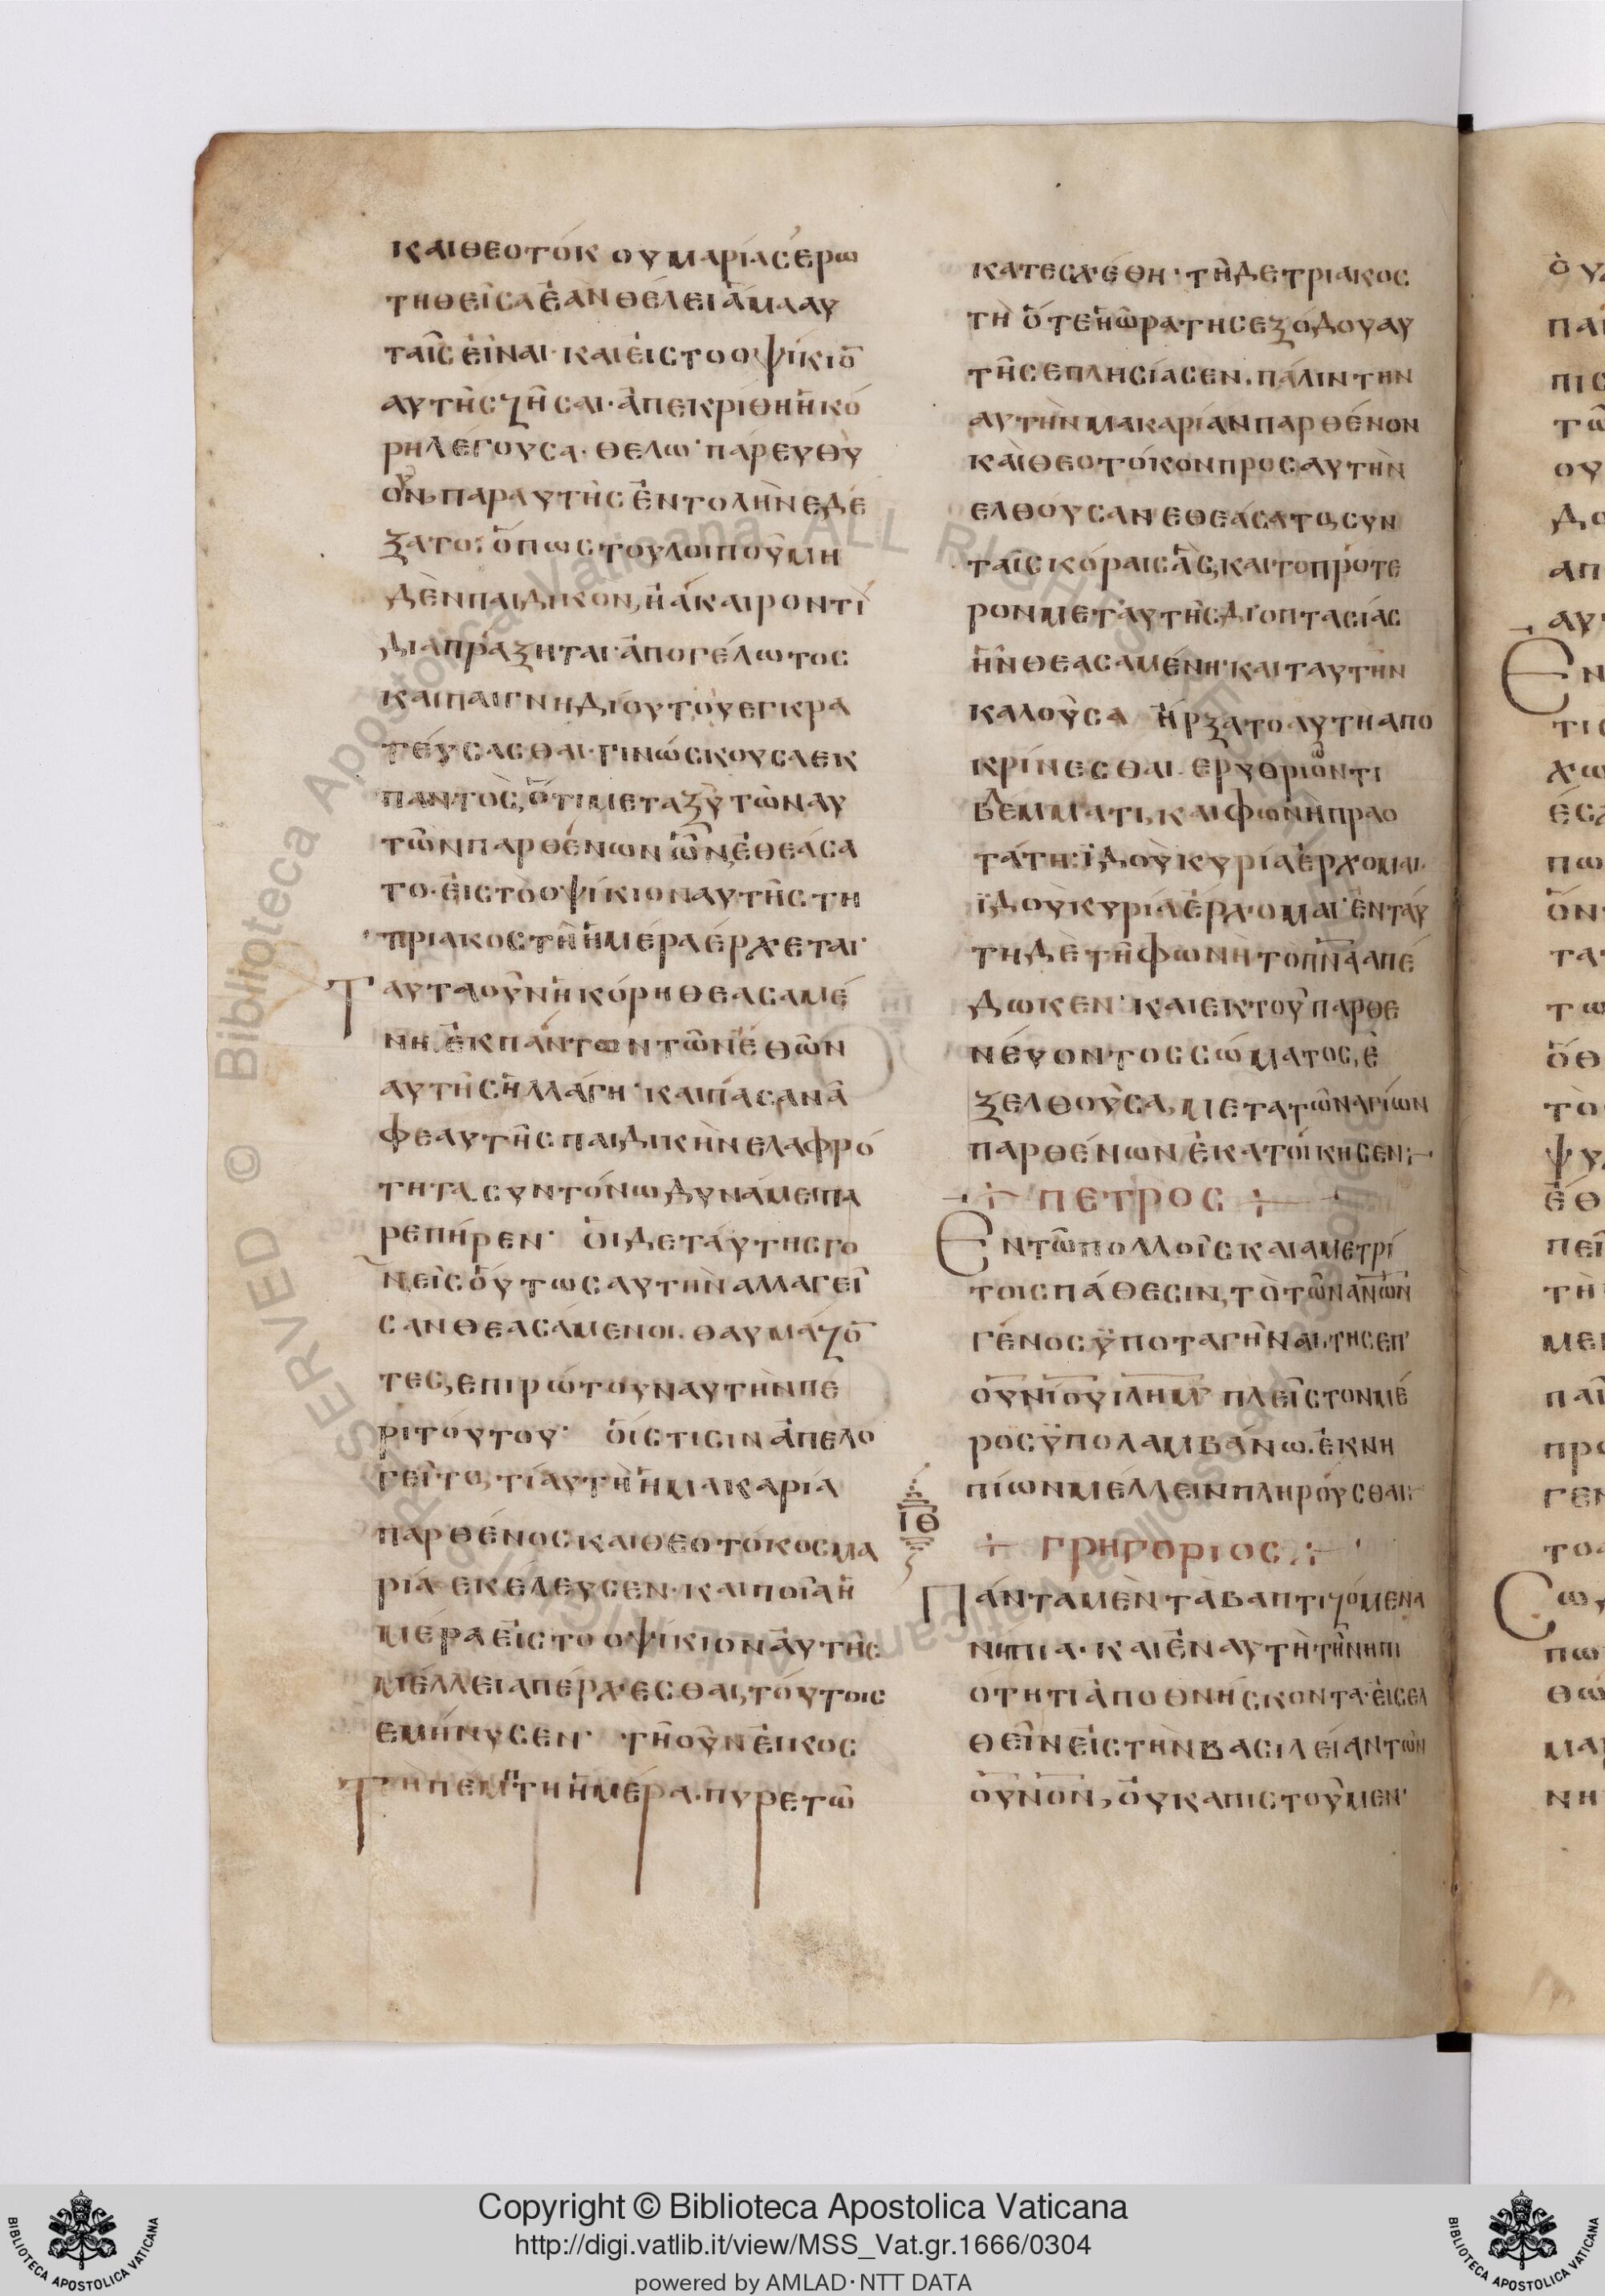 καιθεοτόκ ουμαρίασέρω
τηθεῖσαἐὰνθέλειἅμααυ
ταῖσἐῖναι· καιἐιστοοψίκιο̅
αυτῆσζῆσαι· ἀπεκρίθηἡκό
ρηλέγουσα· θελω· πάρευθὺ
οὖν, παραυτῆσἐντολὴνεδέ
ξατο· ὅπωστουλοιποῦμη
δὲνπαιδικον, ἠἄκαιροντί
διαπράξηται· ἀπογέλωτοσ
καιπαιγνηδίουτοὺεγκρα
τέυσασθαι· γινώσκουσαεκ
παντὸσ, ὅτιμεταξὺτῶναυ
τῶνπαρθένωνὧν, ἐθεάσα
το· ἐιστὸοψίκιοναυτῆστη
τριακοστῆἡμέραέρχεται·
Ταυταοὖνἡκόρηθεασαμέ
νη. ἐκπάντωντῶνἐθῶν
αυτῆσἠλλάγη· καιπᾶσανἀ
φεαυτῆσπαιδικὴνελαφρό
τητα. συντόνωδυνάμεπα
ρεπήρεν· ὁιδεταύτησγο
νεῖσὅυτωσαυτὴναλλαγεῖ
σανθεασάμενοι. θαυμάζο̅
τεσ, επιρώτουναυτὴνπε
ριτούτου· ὅιστισινἀπελο
γεῖτο, τίαυτῆἡμακαρία
παρθένοσκαιθεοτόκοσμα
ρία· εκέλευσεν· καιποίαἡ
μέραεἰστοοψίκιοναὐτῆσ
μέλλειαπέρχεσθαι, τούτοισ
εμήνυσεν· τῆοὖνἐικοσ
τῆπέμπτηἡμέρα· πυρετῶ
κατεσχέθη· τῆδετριακοσ
τῆ ὅτεἡὥρατησεξόδουαυ
τῆσεπλησίασεν. πάλιντην
αυτὴνμακαρίανπαρθένον
καὶθεοτόκονπροσαυτὴν
ελθούσανεθεάσατο, συν
ταῖσκόραισἃσ, καιτοπρότε
ρονμεταυτῆσδιοπτασίασ
ἦνθεασαμένη· καιταυτὴν
καλοῦσα ἤρξατοαυτηαπο
κρίνεσθαι. ερυθριῶντι
βλέμματι, καιφωνῆπραο
τάτη: ϊδοὺκυρίαἐρχομαι·
ϊδοὺκυρίαἐρχομαι· ἐνταύ
τηδὲτῆφωνῆτοπ̅ν̅ααπέ
δωκεν· καιεκτοῦπαρθε
νέυοντοσσώματοσ, ἐ
ξελθοῦσα, μετατῶναγίων
παρθένωνἐκατοίκησεν:
+ ΠΕΤΡΟΣ +
Εντῶπολλοῖσκαιαμετρί
τοισπάθεσιν, τὸτῶνα̅ν̅ων
γένοσϋποταγῆναι, τησεπ
ο̅υ̅ν̅ί̅ο̅υι̅λ̅η̅μ̅ πλεῖστονμέ
ροσϋπολαμβάνω. ἐκνη
πίωνμέλλεινπληρούσθαι:
ΙΘ
+ ΓΡΗΓΟΡΙΟΣ +
Πάνταμὲντὰβαπτιζόμενα
νήπια· καιἐναυτῆτῆνηπι
ότητιἀποθνήσκοντα· ἐισελ
θεῖνεἰστὴνβασιλείαντῶν
ο̅υ̅ν̅ο̅ν̅, ὀυκαπιστοῦμεν·
Copyright © Biblioteca Apostolica Vaticana
http://digi.vatlib.it/view/MSS_Vat.gr.1666/0304
powered by AMLAD·NTT DATA
BIBLIOTECA APOSTOLICA VATICANA
BIBLIOTECA APOSTOLICA VATICANA